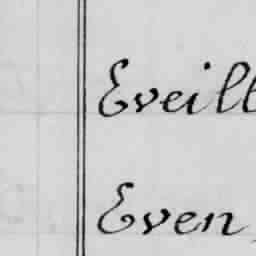 Eveill
Even